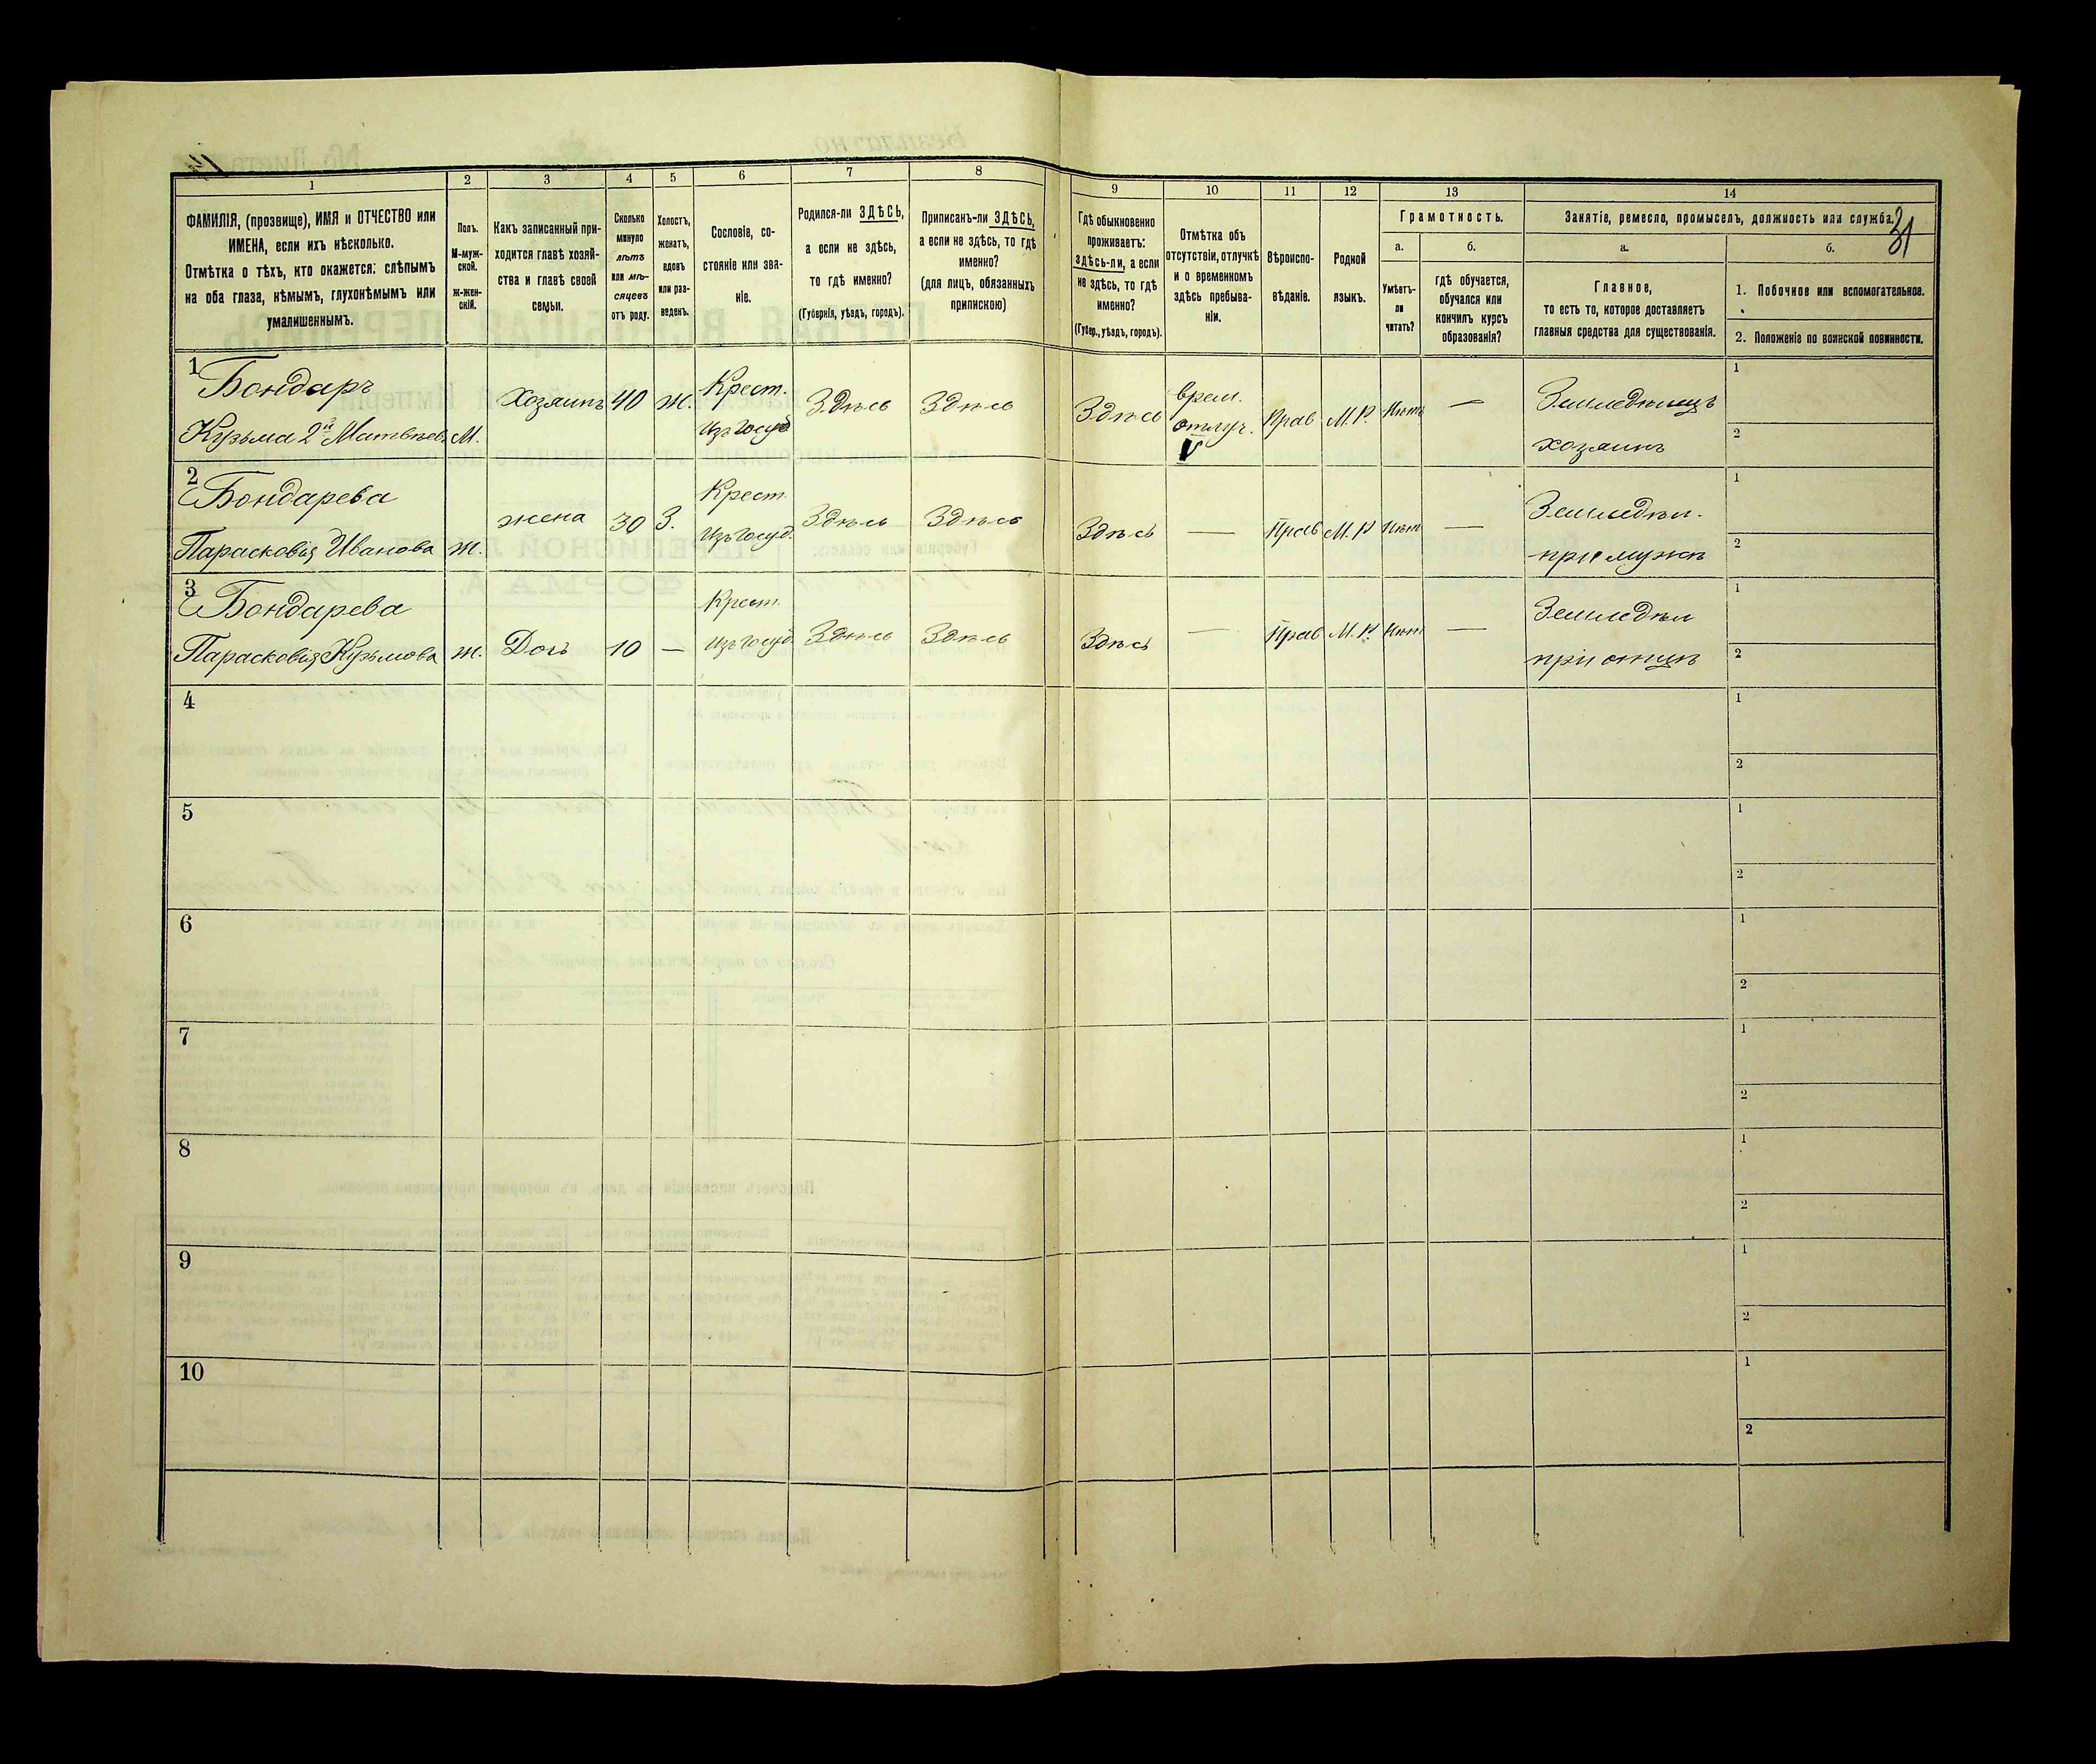 31
1 2 3 4 5 6 7 8 9 10 11 12 13 14
ФАМИЛІЯ, (прозвище), ИМЯ и ОТЧЕСТВО или
ИМЕНА, если ихъ нѣсколько.
Отмѣтка о тѣхъ, кто окажется: слѣпымъ
на оба глаза, нѣмымъ, глухонѣмымъ или
умалишеннымъ.
Полъ.
М-муж-
ской.
Ж-жен-
скій.
Какъ записанный при-
ходится главѣ хозяй-
ства и главѣ своей
семьи.
Сколько
минуло
лѣтъ
или мѣ-
сяцевъ
отъ роду.
Холостъ,
женатъ,
вдовъ
или раз-
веденъ.
Сословіе, со-
стояніе или зва-
ніе.
Родился-ли ЗДѢСЬ,
а если не здѣсь,
то гдѣ именно?
(Губернія, уѣздъ, городъ).
Приписанъ-ли ЗДѢСЬ,
а если не здѣсь, то гдѣ
именно?
(для лицъ, обязанныхъ
припискою)
Гдѣ обыкновенно
проживаетъ:
здѣсь-ли, а если
не здѣсь, то гдѣ
именно?
(Губер., уѣздъ, городъ).
Отмѣтка объ
отсутствіи, отлучкѣ
и о временномъ
здѣсь пребыва-
ніи.
Вѣроиспо-
вѣданіе.
Родной
языкъ.
Грамотность.
а. б.
Умѣетъ-
ли
читать?
гдѣ обучается,
обучался или
кончилъ курсъ
образованія?
Занятіе, ремесло, промыселъ, должность или служба.
а. б.
Главное,
то есть то, которое доставляетъ
главныя средства для существованія.
1. Побочное или вспомогательное.
2. Положеніе по воинской повинности.
1 Бондаръ Крест. врем. Земледѣлецъ 1
Хозяинъ 40 Ж. Здѣсь Здѣсь Здѣсь —
Кузьма 2й Матвѣев. М. Изъ Госуд отлуч. Прав М.Р. Нѣтъ хозяинъ 2
2 Бондарева Крест. Земледѣл. 1
жена 30 З. Здѣсь Здѣсь Здѣсь — Прав М.Р Нѣт —
Парасковія Иванова Ж. Изъ Госуд. при мужѣ 2
3 Бондарева Крест. Земледѣл 1
Парасковія Кузьмова Ж. Дочь 10 — Изъ Госуд Здѣсь Здѣсь Здѣсь — Прав М.Р Нѣт — при отцѣ 2
4 1
2
5 1
2
6 1
2
7 1
2
8 1
2
9 1
2
10 1
2